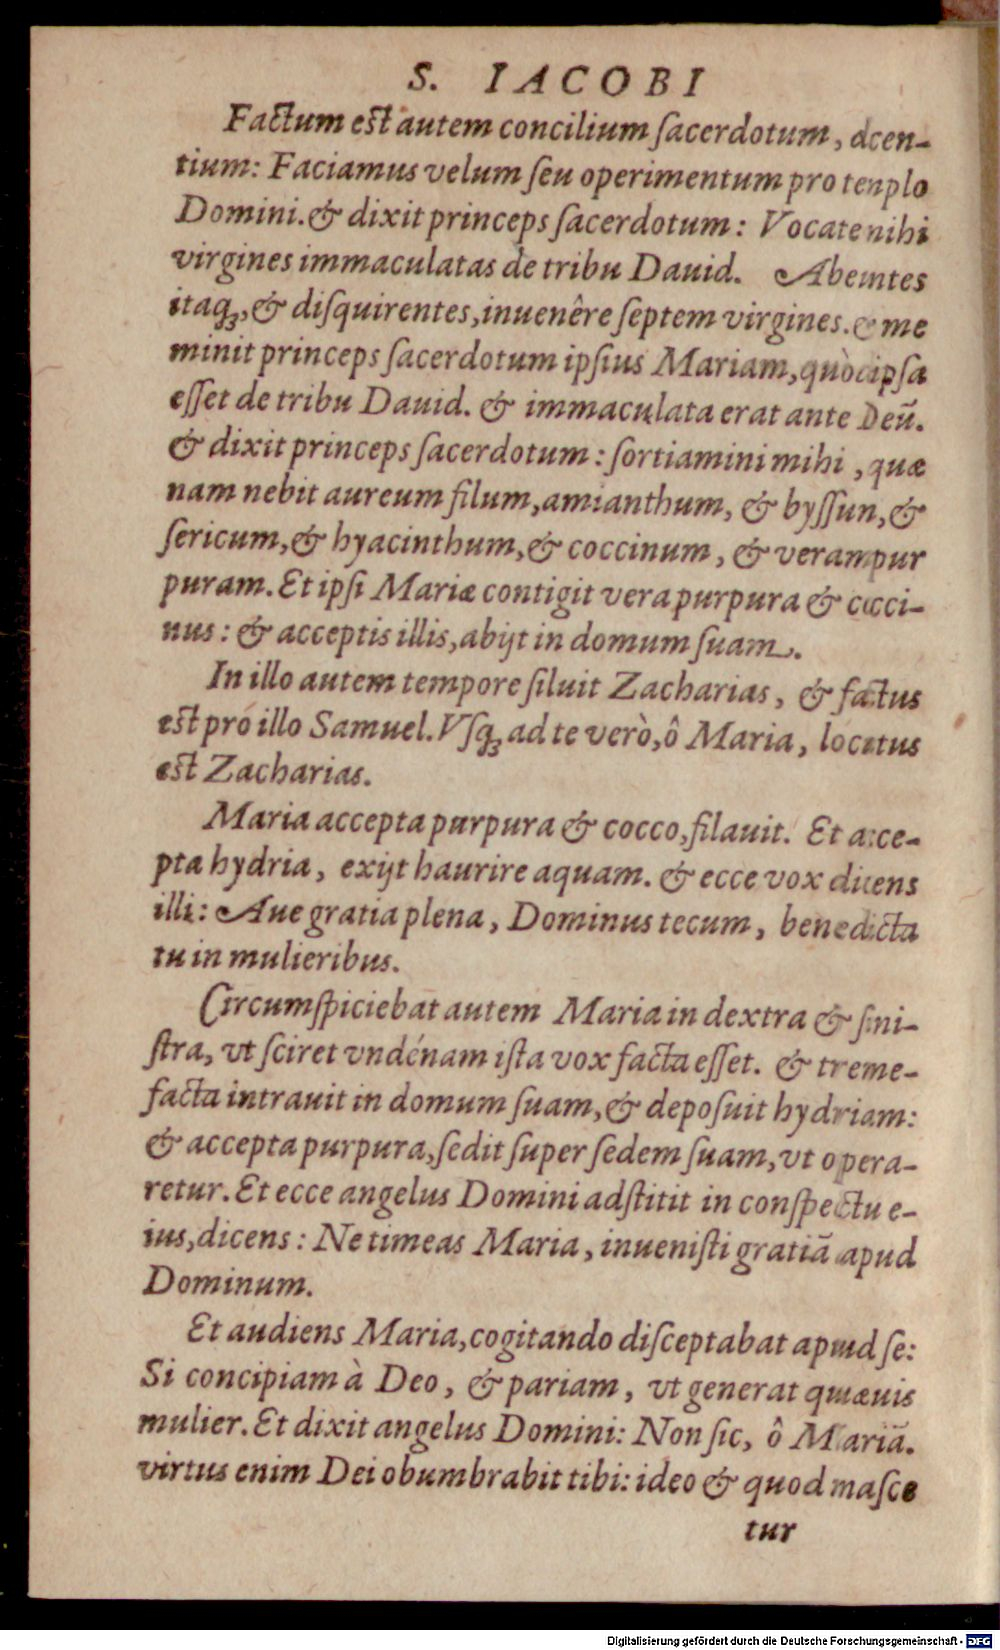 S. IACOBI
Factum est autem concilium ſacerdotum, dcen-
tium: Faciamus velum ſeu operimentum pro templo
Domini. & dixit princeps ſacerdotum: Vocate mihi
virgines immaculatas de tribu Dauid. Abeuntes
itaq;, & diſquirentes, inuenêre ſeptem virgines. & me
minit princeps ſacerdotum ipſius Mariam, quòd ipſa
eſſet de tribu Dauid. & immaculata erat ante Deū.
& dixit princeps ſacerdotum: ſortiamini mihi, quæ
nam nebit aureum filum, amianthum, & byſſun, &
ſericum, & hyacinthum, & coccinum, & veram pur
puram. Et ipſi Mariæ contigit vera purpura & cocci-
nus: & acceptis illis, abijt in domum ſuam.
In illo autem tempore ſiluit Zacharias, & factus
est pro illo Samuel. Vſq; ad te verò, ô Maria, locutus
est Zacharias.
Maria accepta purpura & cocco, filauit. Et acce-
pta hydria, exijt haurire aquam. & ecce vox dicens
illi: Aue gratia plena, Dominus tecum, benedicta
tu in mulieribus.
Circumſpiciebat autem Maria in dextra & ſini-
ſtra, vt ſciret vndénam iſta vox facta eſſet. & treme-
facta intrauit in domum ſuam, & depoſuit hydriam:
& accepta purpura, ſedit ſuper ſedem ſuam, vt opera-
retur. Et ecce angelus Domini adſtitit in conſpectu e-
ius, dicens: Ne timeas Maria, inueniſti gratiā apud
Dominum.
Et audiens Maria, cogitando diſceptabat apud ſe:
Si concipiam à Deo, & pariam, vt generat quæuis
mulier. Et dixit angelus Domini: Non ſic, ô Mariā.
virtus enim Dei obumbrabit tibi: ideo & quod naſce
tur
Digitalisierung gefördert durch die Deutsche Forschungsgemeinschaft - DFG